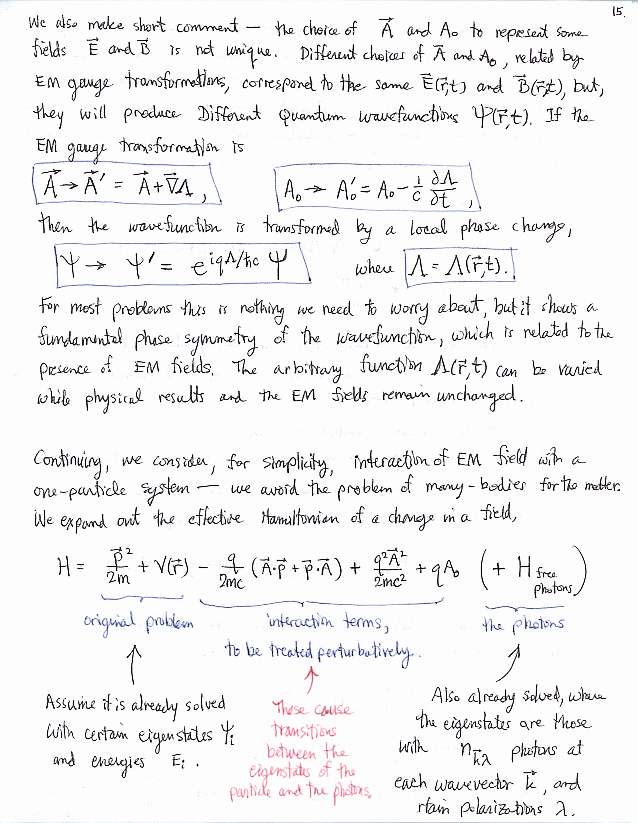 15.
We also make short comment — the choice of A⃗ and A₀ to represent some
fields E⃗ and B⃗ is not unique. Different choices of A⃗ and A₀, related by
EM gauge transformations, correspond to the same E⃗(r⃗,t) and B⃗(r⃗,t), but,
they will produce Different Quantum wavefunctions Ψ(r⃗,t). If the
EM gauge transformation is
A⃗ → A⃗' = A⃗ + ∇⃗Λ, A₀ → A₀' = A₀ - 1/c ∂Λ/∂t,
then the wavefunction is transformed by a local phase change,
Ψ → Ψ' = e^{iqΛ/ħc} Ψ where Λ = Λ(r⃗,t).
For most problems this is nothing we need to worry about, but it shows a
fundamental phase symmetry of the wavefunction, which is related to the
presence of EM fields. The arbitrary function Λ(r⃗,t) can be varied
while physical results and the EM fields remain unchanged.
Continuing, we consider, for simplicity, interaction of EM field with a
one-particle system — we avoid the problem of many-bodies for the matter.
We expand out the effective Hamiltonian of a change in a field,
H = p⃗²/2m + V(r⃗) - q/2mc (A⃗·p⃗ + p⃗·A⃗) + q²A⃗²/2mc² + qA₀ (+ H free photons)
original problem
interaction terms,
to be treated perturbatively.
the photons
Assume it is already solved
with certain eigenstates Ψᵢ
and energies Eᵢ.
These cause
transitions
between the
eigenstates of the
particle and the photons.
Also already solved, where
the eigenstates are those
with n_{k⃗λ} photons at
each wavevector k⃗, and
rtain polarizations λ.